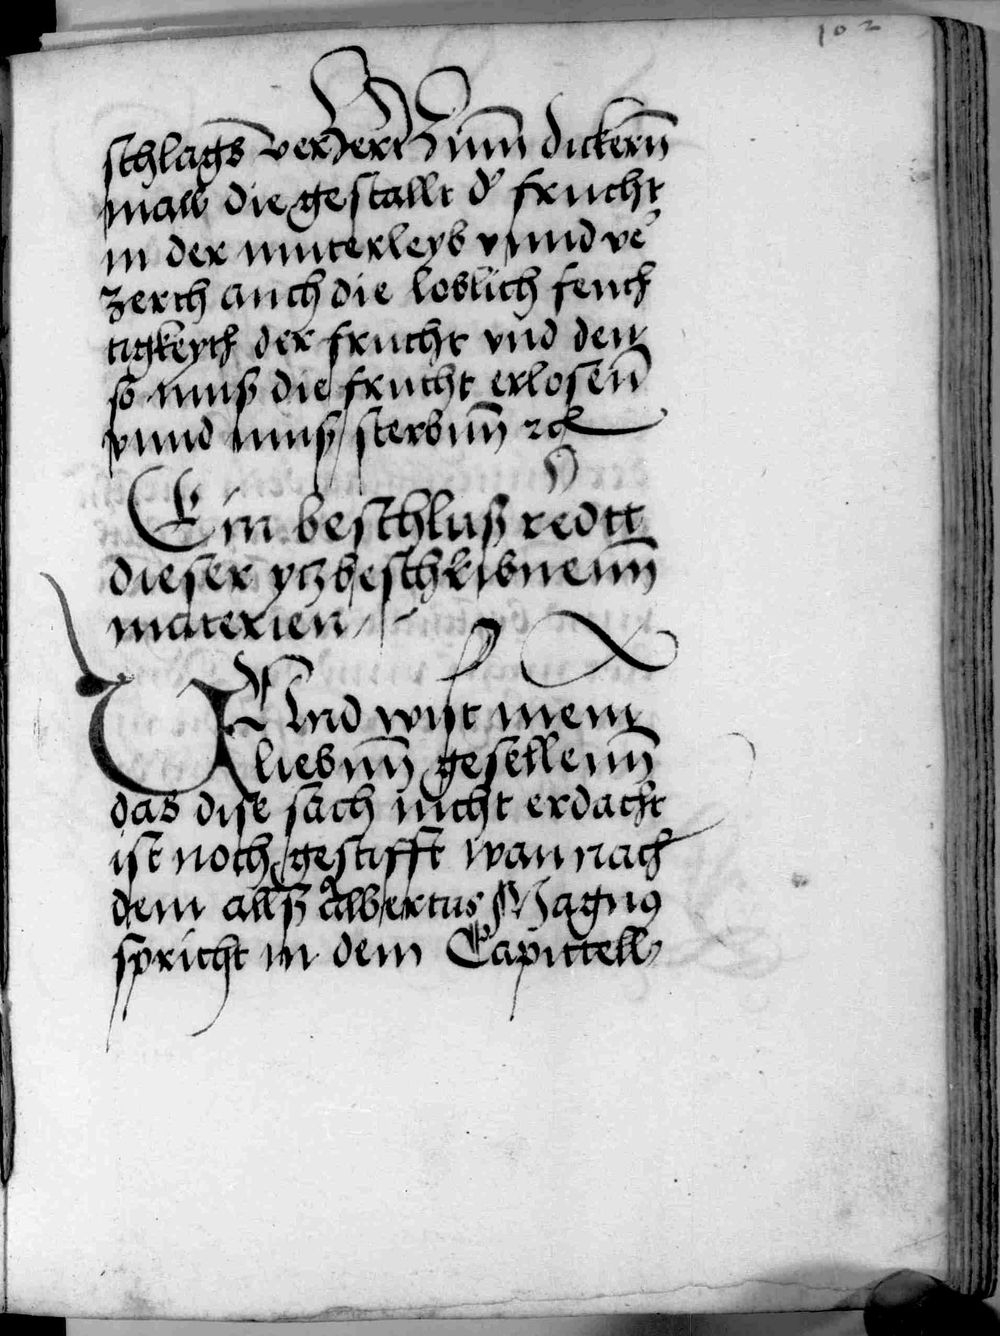 102
schlags verzert Zum̄ dickern̄
mall die gestallt d' frucht
in der muterleyb vnnd ve'
zerth auch die loslich feuch
tigkeyth der frucht vnd den
so muß die frucht erlosen̄
vnnd muß sterbnn̄ ⁊c
Ein beschluß redtt
dieser ytz beschribnenn̄
materien
VNnd wist mein
liebnn̄ gesellenn̄
das dise sach nicht erdacht
ist noch gestifft wan nach
dem allß Albertus Magnꝰ
spricht in dem Capittell